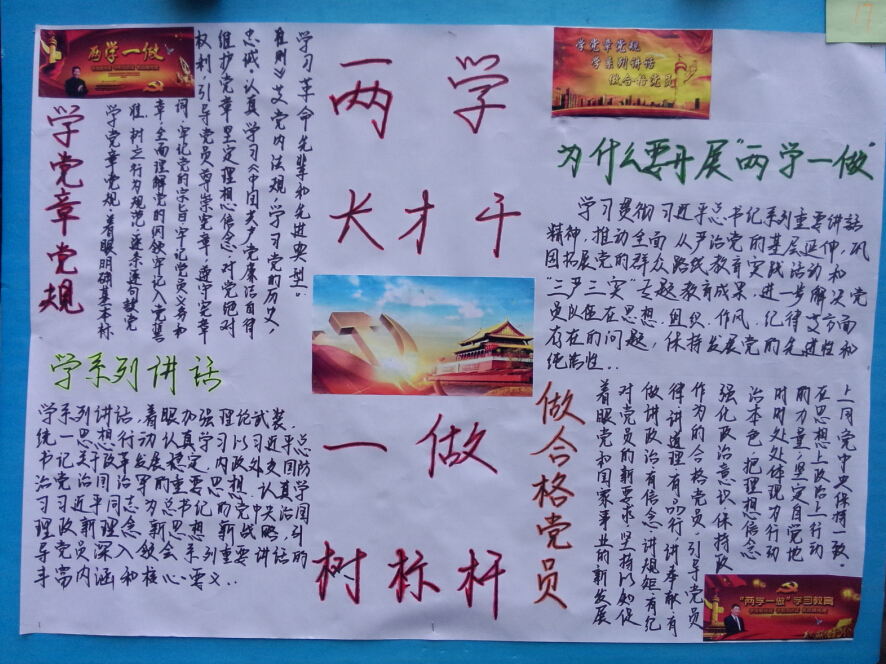 两学一做
学党章党规
学系列讲话
做合格党员
两学
长才干
一做
树标杆
学党章党规
学党章党规,着眼明确基本标
准、树立行为规范,逐条逐句读党
章,全面理解党的纲领牢记入党誓
词,牢记党的宗旨,牢记党员义务和
权利,引导党员尊崇党章,遵守党章
维护党章坚定理想信念,对党绝对
忠诚,认真学习《中国共产党廉洁自律
准则》艾党内法规,学习党的历史,
学习革命先辈和先进典型。
学系列讲话
学系列讲话,着眼加强理论武装、
统一思想行动认真学习以习近平总
书记关于改革发展稳定、内政外交国防
治党治国治军的重要思想,认真学
习习近平同志为总书记的党中央治国
理政新理念、新思想、新战略,引
导党员深入领会系列重要讲话的
丰富内涵和核心要义..
为什么要开展"两学一做"
学习贯彻习近平总书记系列重要讲话
精神,推动全面从严治党的基层延伸,巩
固拓展党的群众路线教育实践活动和
"三严三实"专题教育成果,进一步解决党
员队伍在思想、组织、作风、纪律艾方面
存在的问题,保持发展党的先进性和
纯洁性..
做合格党员
着眼党和国家事业的新发展
对党员的新要求,坚持以知促
做讲政治有信念,讲规矩、有纪
律,讲道理、有品行,讲奉献、有
作为的合格党员,引导党员
强化政治意识,保持政
治本色,把理想信念
时时处处体现为行动
的力量;坚定自觉地
在思想上政治上行动
上同党中央保持一致。
"两学一做"学习教育
17